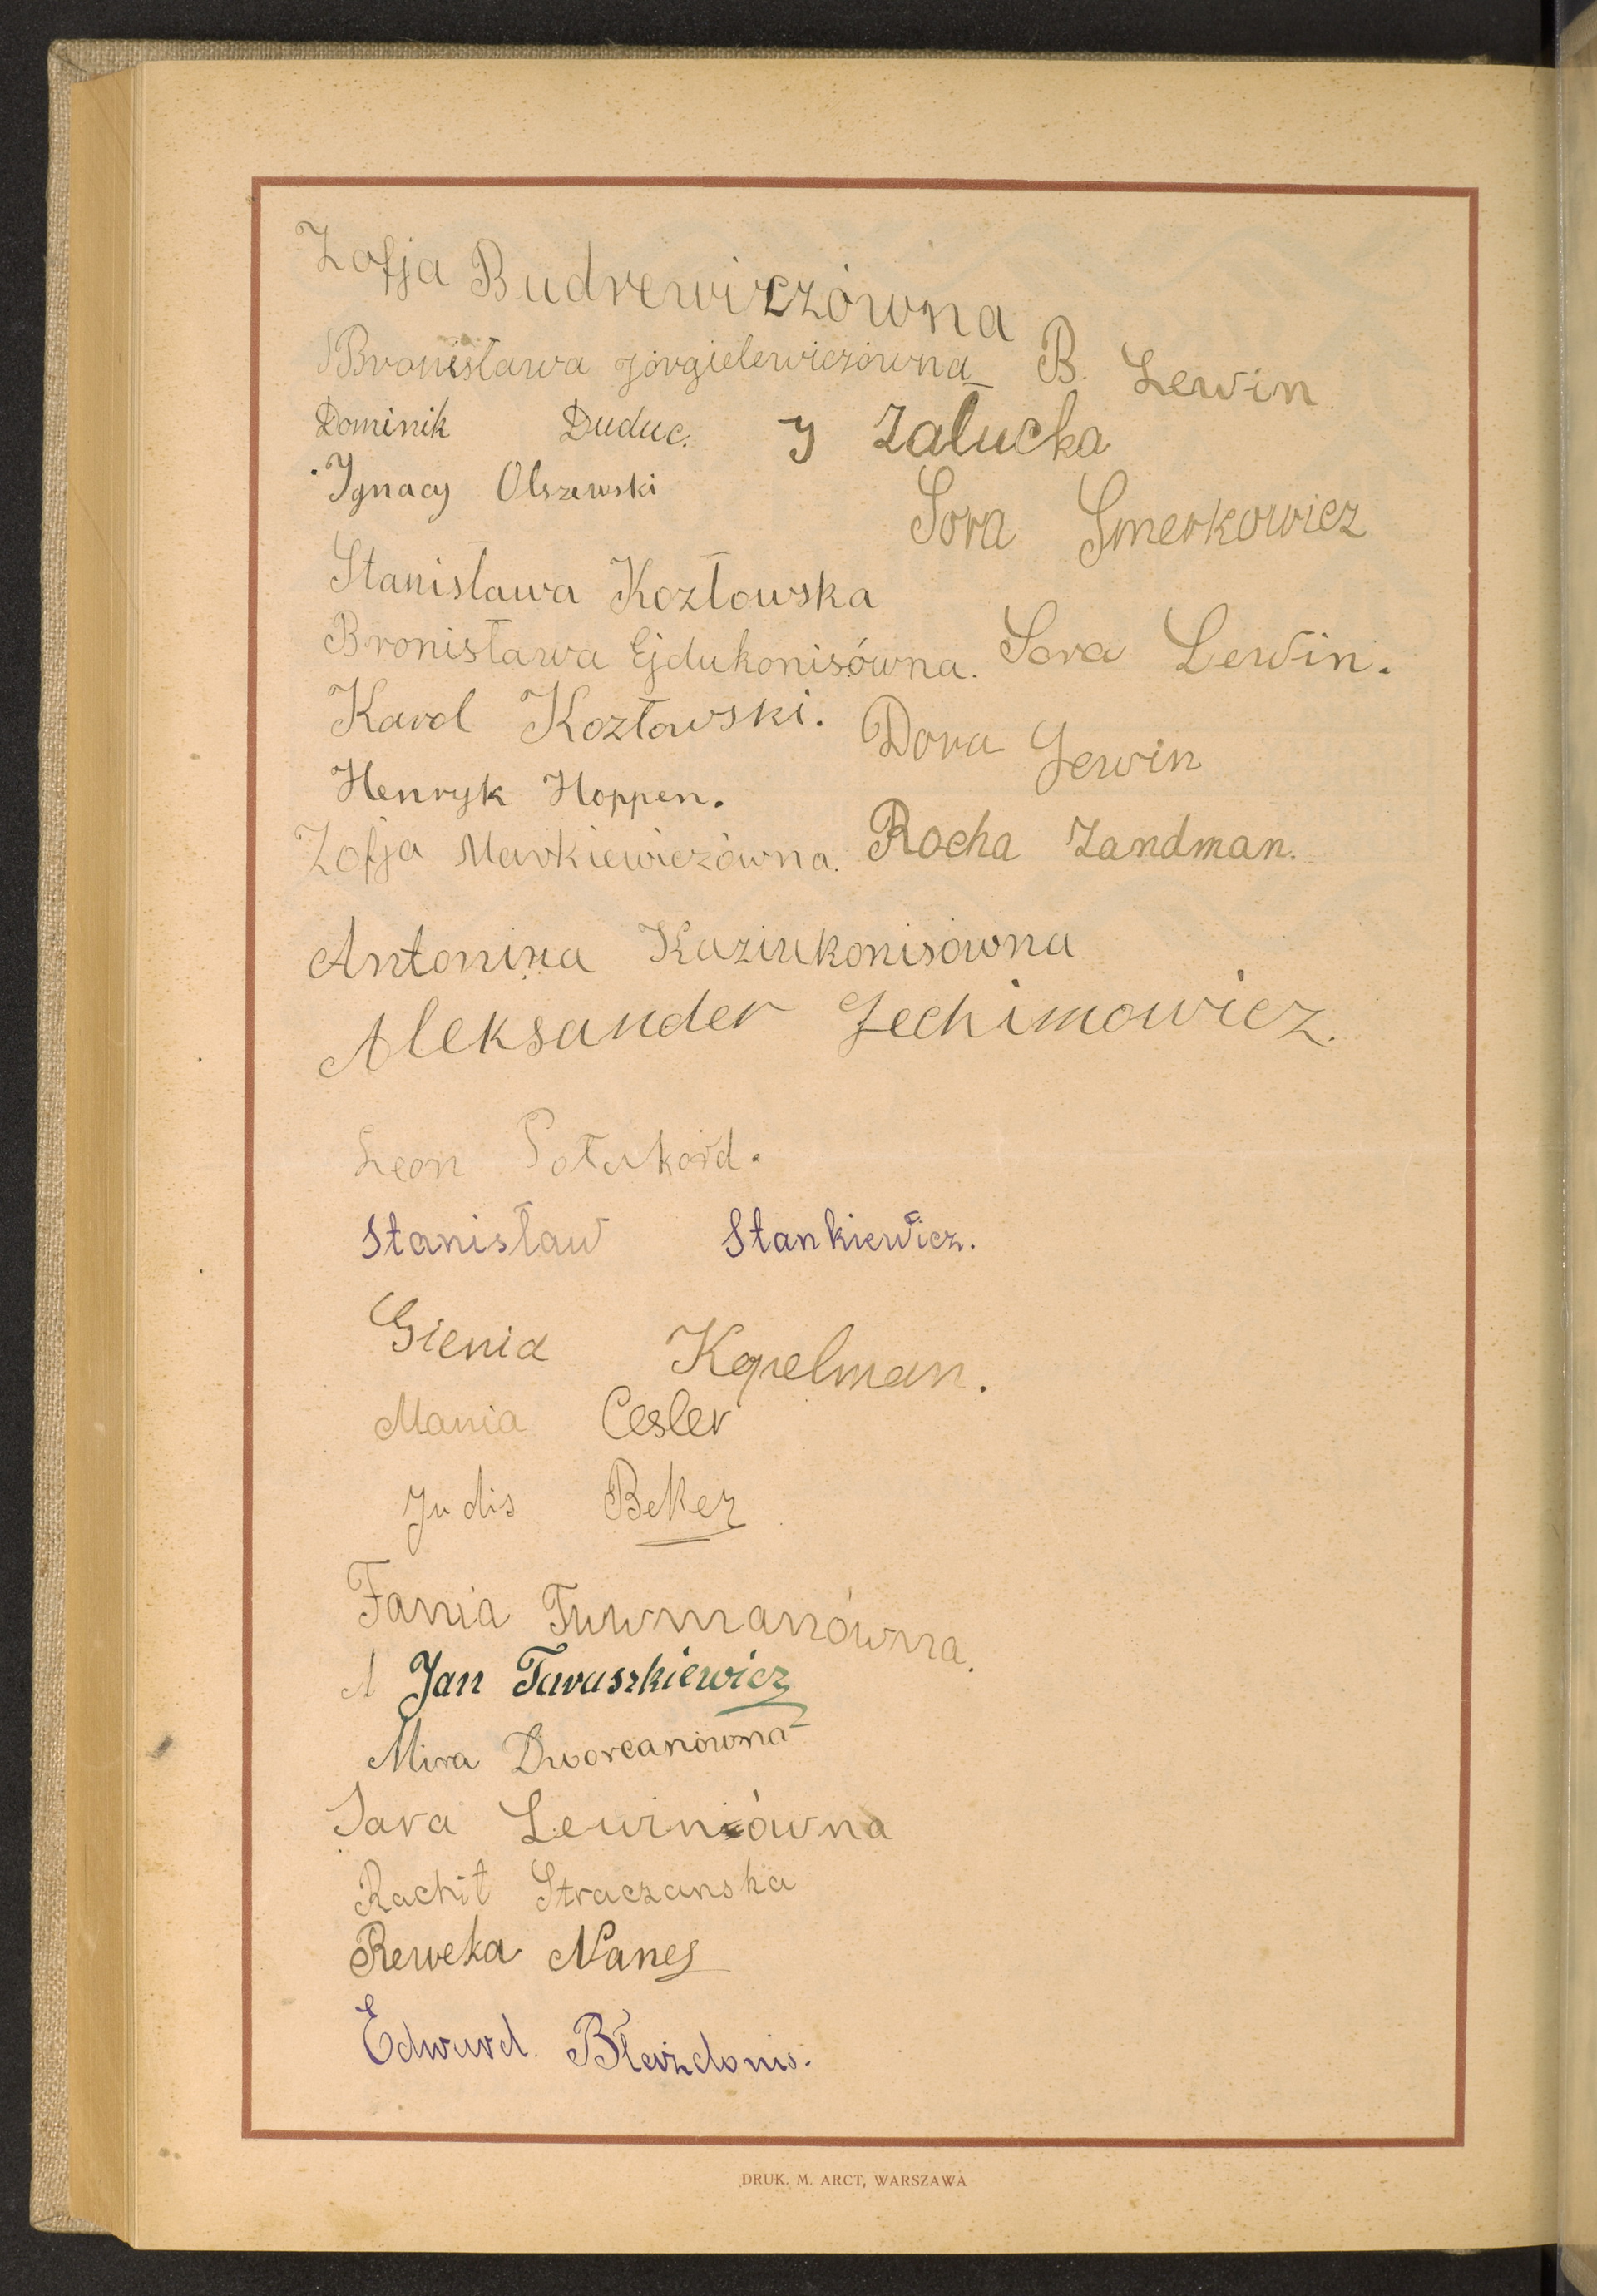 Zofja Budrewiczówna
Bronisława Jórgielewiczówna B. Lewin
Dominik Duduc. J Załucka
Ignacy Olszewski
Sora Smerkowicz
Stanisława Kozłowska
Bronisława Ejdukonisówna. Sora Lewin.
Karol Kozłowski.
Dora Lewin
Henryk Hoppen.
Zofja Markiewiczówna. Rocha Zandman.
Antonina Kaziukonisówna
Aleksander Jechimowicz.
Leon
Stanisław Stankiewicz.
Gienia Kopelman.
Mania Cesler
Judis Beker
Fania Furmanówna.
Jan Taraszkiewicz
Mira Dworcanówna
Sara Lewinówna
Rachil Straczanska
Reweka Nanes
Edward Błażdonis.
DRUK. M. ARCT, WARSZAWA